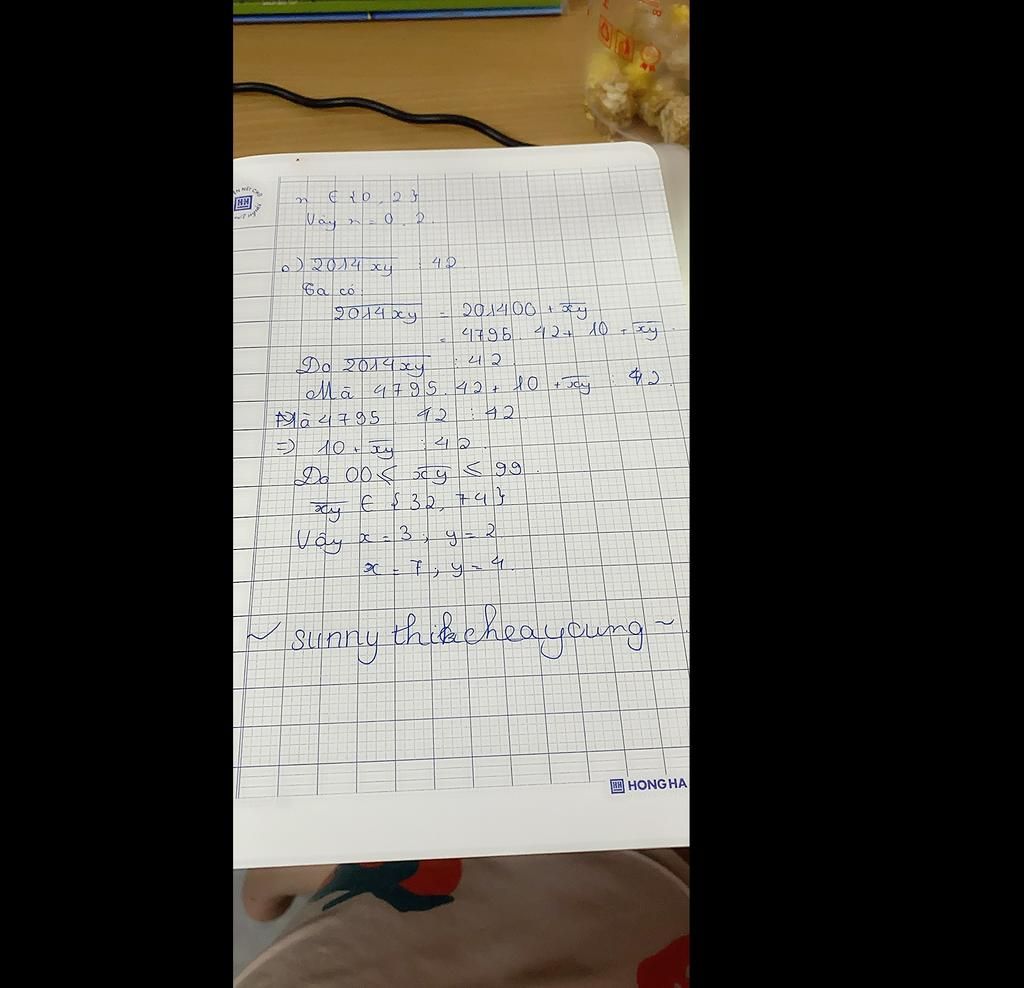 n ∈ {0, 2}
Vậy n = 0, 2.
c) 2014xy ⋮ 42
Ta có
2014xy = 201400 + xy
= 4795. 42 + 10 + xy.
Do 2014xy ⋮ 42
Mà 4795.42 + 10 + xy ⋮ 42
Mà 4795 42 ⋮ 42
=> 10 + xy ⋮ 42
Do 00 ≤ xy ≤ 99.
xy ∈ {32, 74}
Vậy x = 3; y = 2
x = 7; y = 4.
~ sunny thík cheayoung ~
HH HONG HA